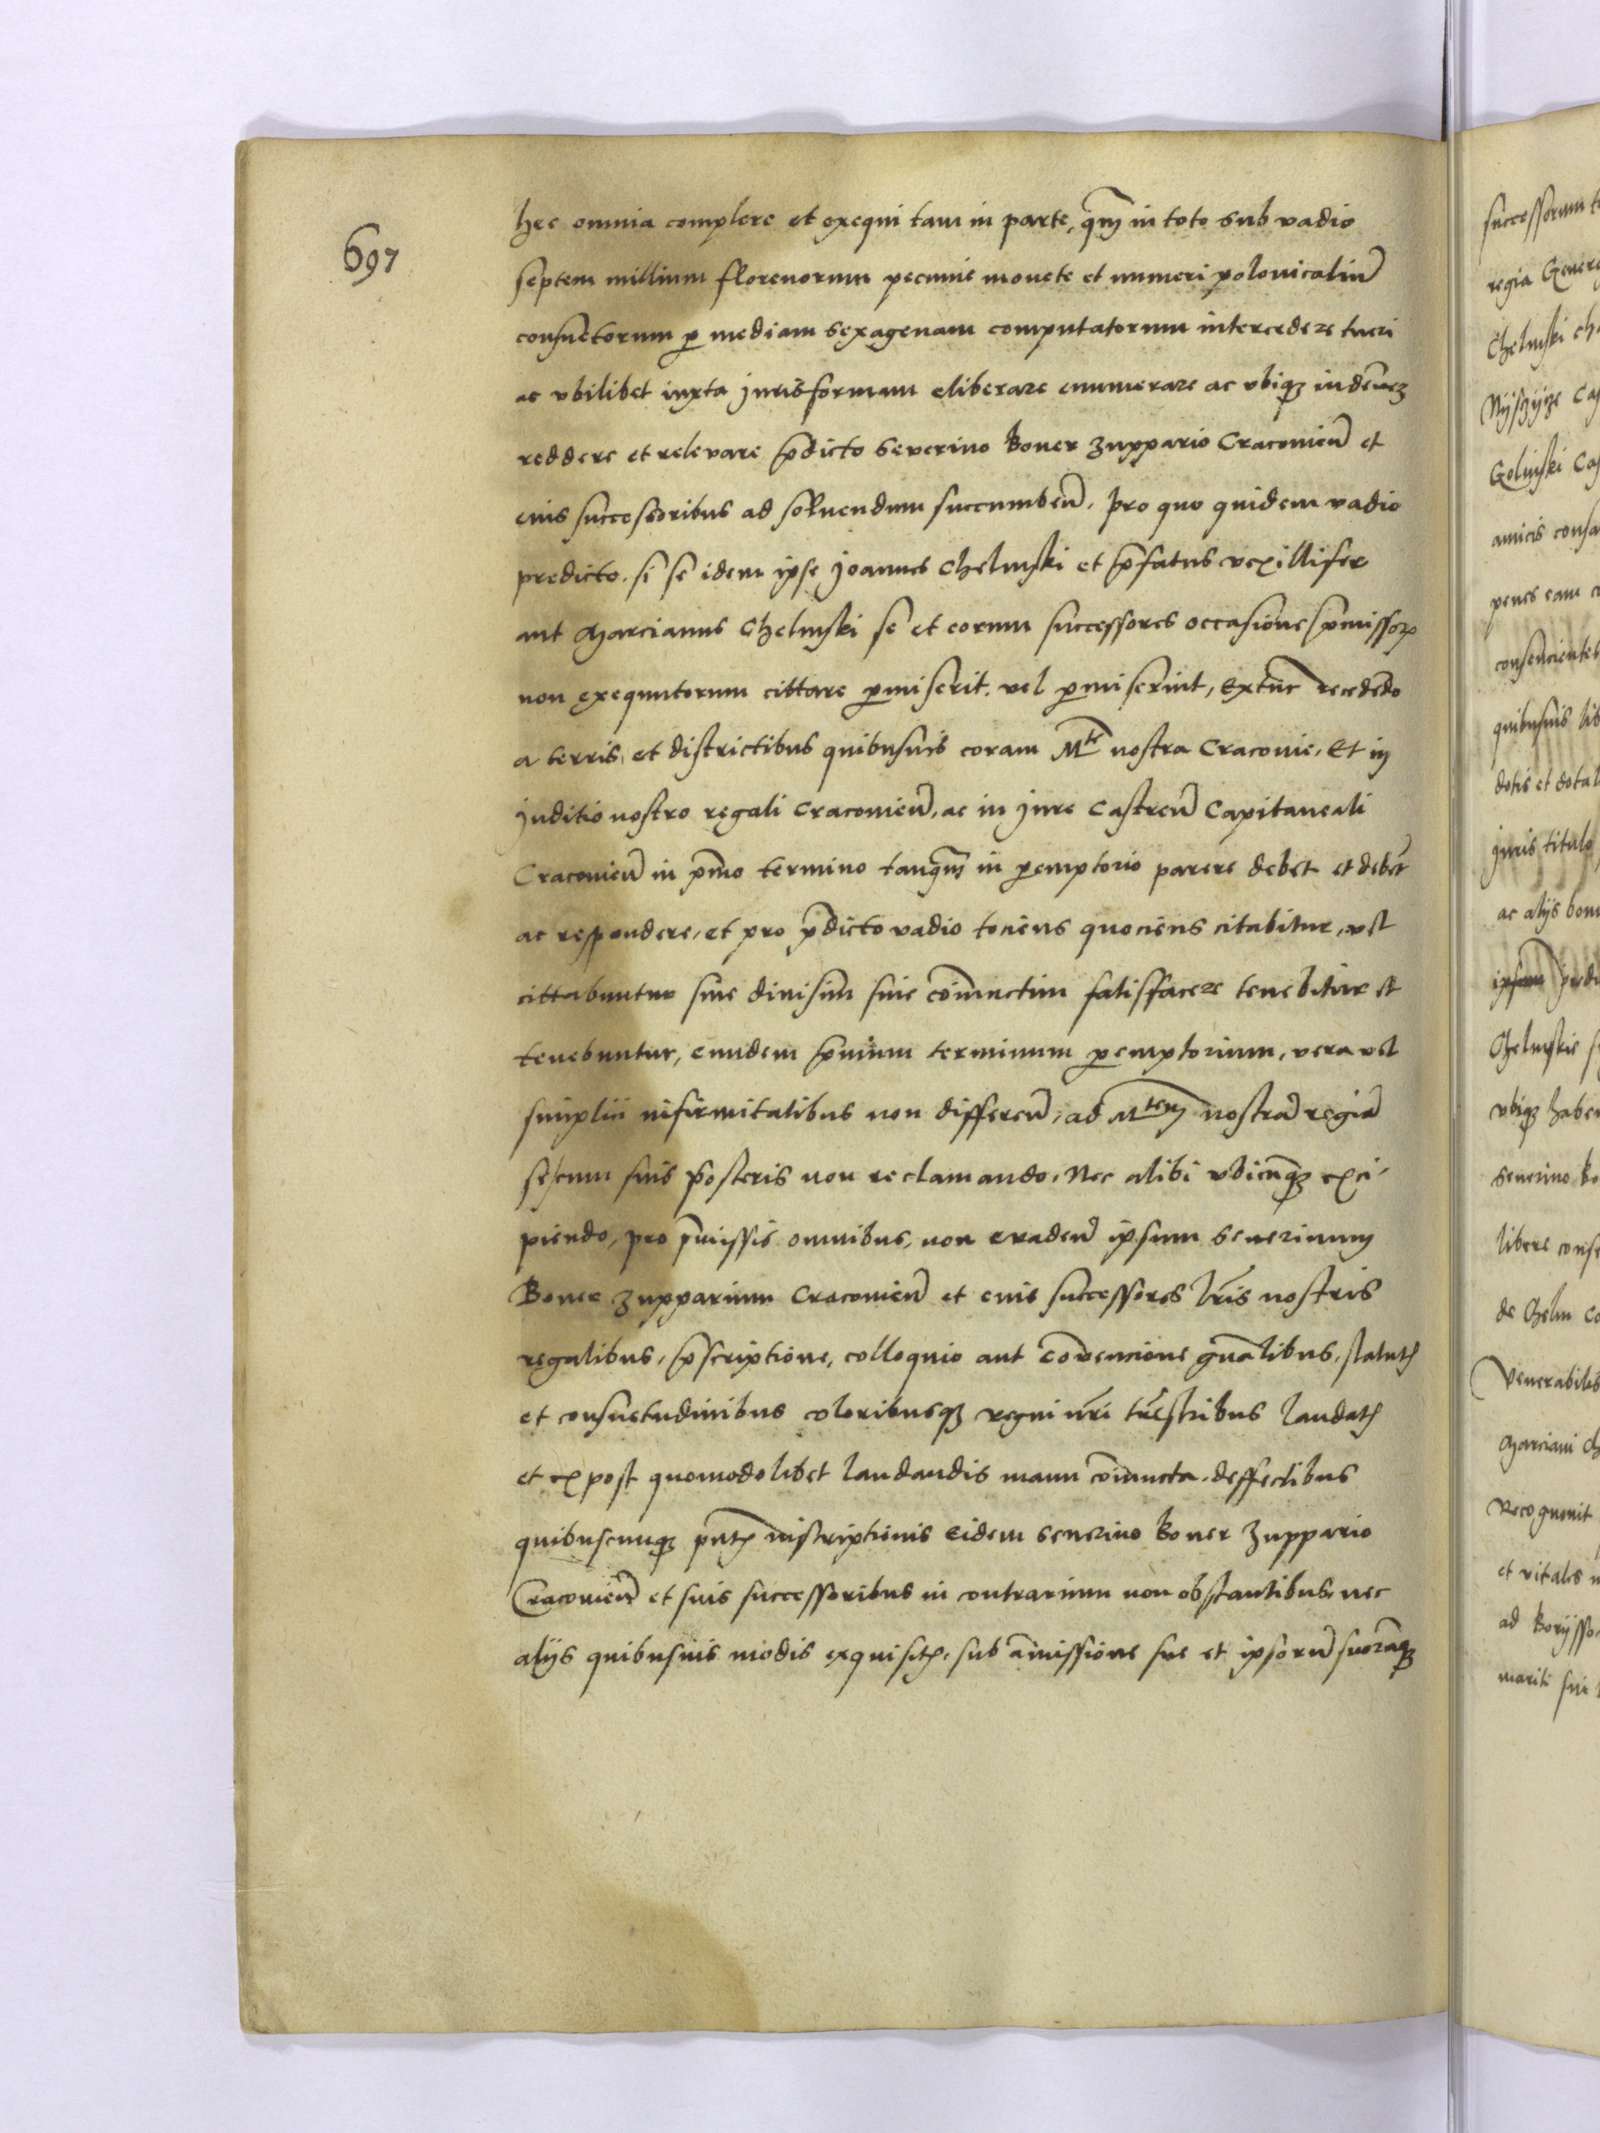 697
hec omnia complere et exequi tam in parte, qm̃ in toto sub vadio
septem millium florenorum pecunie monete et numeri polonicaliũ
consuetorum ꝑ mediam sexagenam computatorum intercedere tueri
ac vbilibet iuxta jurisformam eliberare enumerare ac vbiqꝫ indẽnez
reddere et relevare p̃dicto Severino Boner Zuppario Cracovieñ et
eius successoribus ad solvendum succumbeñ, pro quo quidem vadio
predicto. si se idem ipse Joannes Chelmski et p̃fatus vexillifer
aut Marcianus Chelmski se et eorum successores occasione p̃missoꝝ
non exequutorum cittare ꝑmiserit, vel ꝑmiserint, Extũc recedẽdo
a terris, et districtibus quibusvis coram Mte nostra Cracovie, Et in
Juditio nostro regali Cracovieñ, ac in jure Castreñ Capitaneali
Cracovieñ in p̃mo termino tanq̃m in ꝑemptorio parere debet et debẽt
ac respondere, et pro p̃dicto vadio tociens quociens citabitur, vel
cittabuntur sive divisim sive cõiunctim satisfacere tenebitur et
tenebuntur, eundem p̃mum terminum ꝑemptorium, vera vel
simplici infirmitatibus non differeñ, ad Mtem nostrã regiã
se/cum suis posteris non reclamando, Nec alibi vbicũqꝫ exci-
piendo, pro p̃missis omnibus, non evadeñ ipsum Severinum
Boner Zupparium Cracovieñ et eius successores lr̃is nostris
regalibus, p̃scriptione, colloquio aut cõvencione gñalibus, statutꝭ
et consuetudinibus coloribusqꝫ regni nr̃i tr̃estribus laudatꝭ
et ex post quomodolibet laudandis manu cõiuncta, deffectibus
quibuscunqꝫ pñtꝭ inscriptionis Eidem Severino Boner Zuppario
Cracovieñ et suis successoribus in contrarium non obstantibus, nec
alijs quibusvis modis exquisitꝭ, sub amissione sue et ipsorũ suorũqꝫ
regia
Chelmski
Golinski
amicis
penes eam
consencientes
quibusvis
dotis et dotal
juris titulo
ac alijs bon
Chelmskie
vbiqꝫ
Severino Bo
libere conse
de Chelm
Venerabiles
Marciani
Recognovit
et vitales
ad
mariti sui